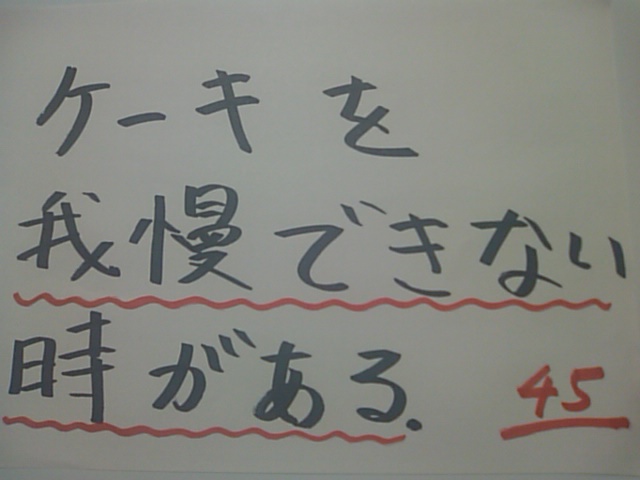 ケーキを
我慢できない
時がある.
45